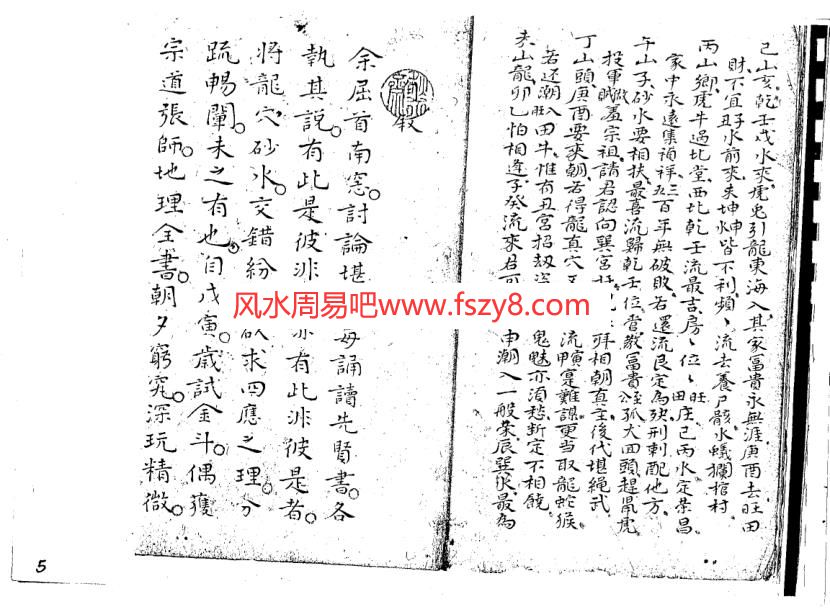 己山亥乾壬戌水來虎兒引龍東海入其家富貴永無涯庚酉去旺田
財不宜子丑水前來夫坤申皆不利頻〻流去養尸骸水蟻攔棺村
丙山鄉虎牛過北堂西北乾壬流最吉房〻位〻旺田庄己丙水定榮昌
家中永遠集禎祥三百年無破敗若還流艮定為殃刑刺配他方
午山子砂水要相扶最喜流歸乾壬位當教富貴孤犬四頭趕鼠虎
投軍賊羞宗祖請君認向巽宮 拜相朝真主後代堪繩武
丁山頭庚酉要來朝若得龍真穴 流寅寔難誤更当取龍蛇猴
若还潮入田牛惟有丑宮招劫盜 鬼魅亦須愁断定不相饒
未山龍卯乙怕相逢子癸流來君可 申潮入一般荣辰巽水最為
叙
余屈首南窓討論堪 每誦讀先賢書各
執其說有此是彼非 亦有此非彼是者
將龍穴砂水交錯紛 欲求四應之理分
疏暢闡未之有也自戊寅歲試金斗偶獲
宗道張師地理全書朝夕窮究深玩精微
风水周易吧www.fszy8.com
5